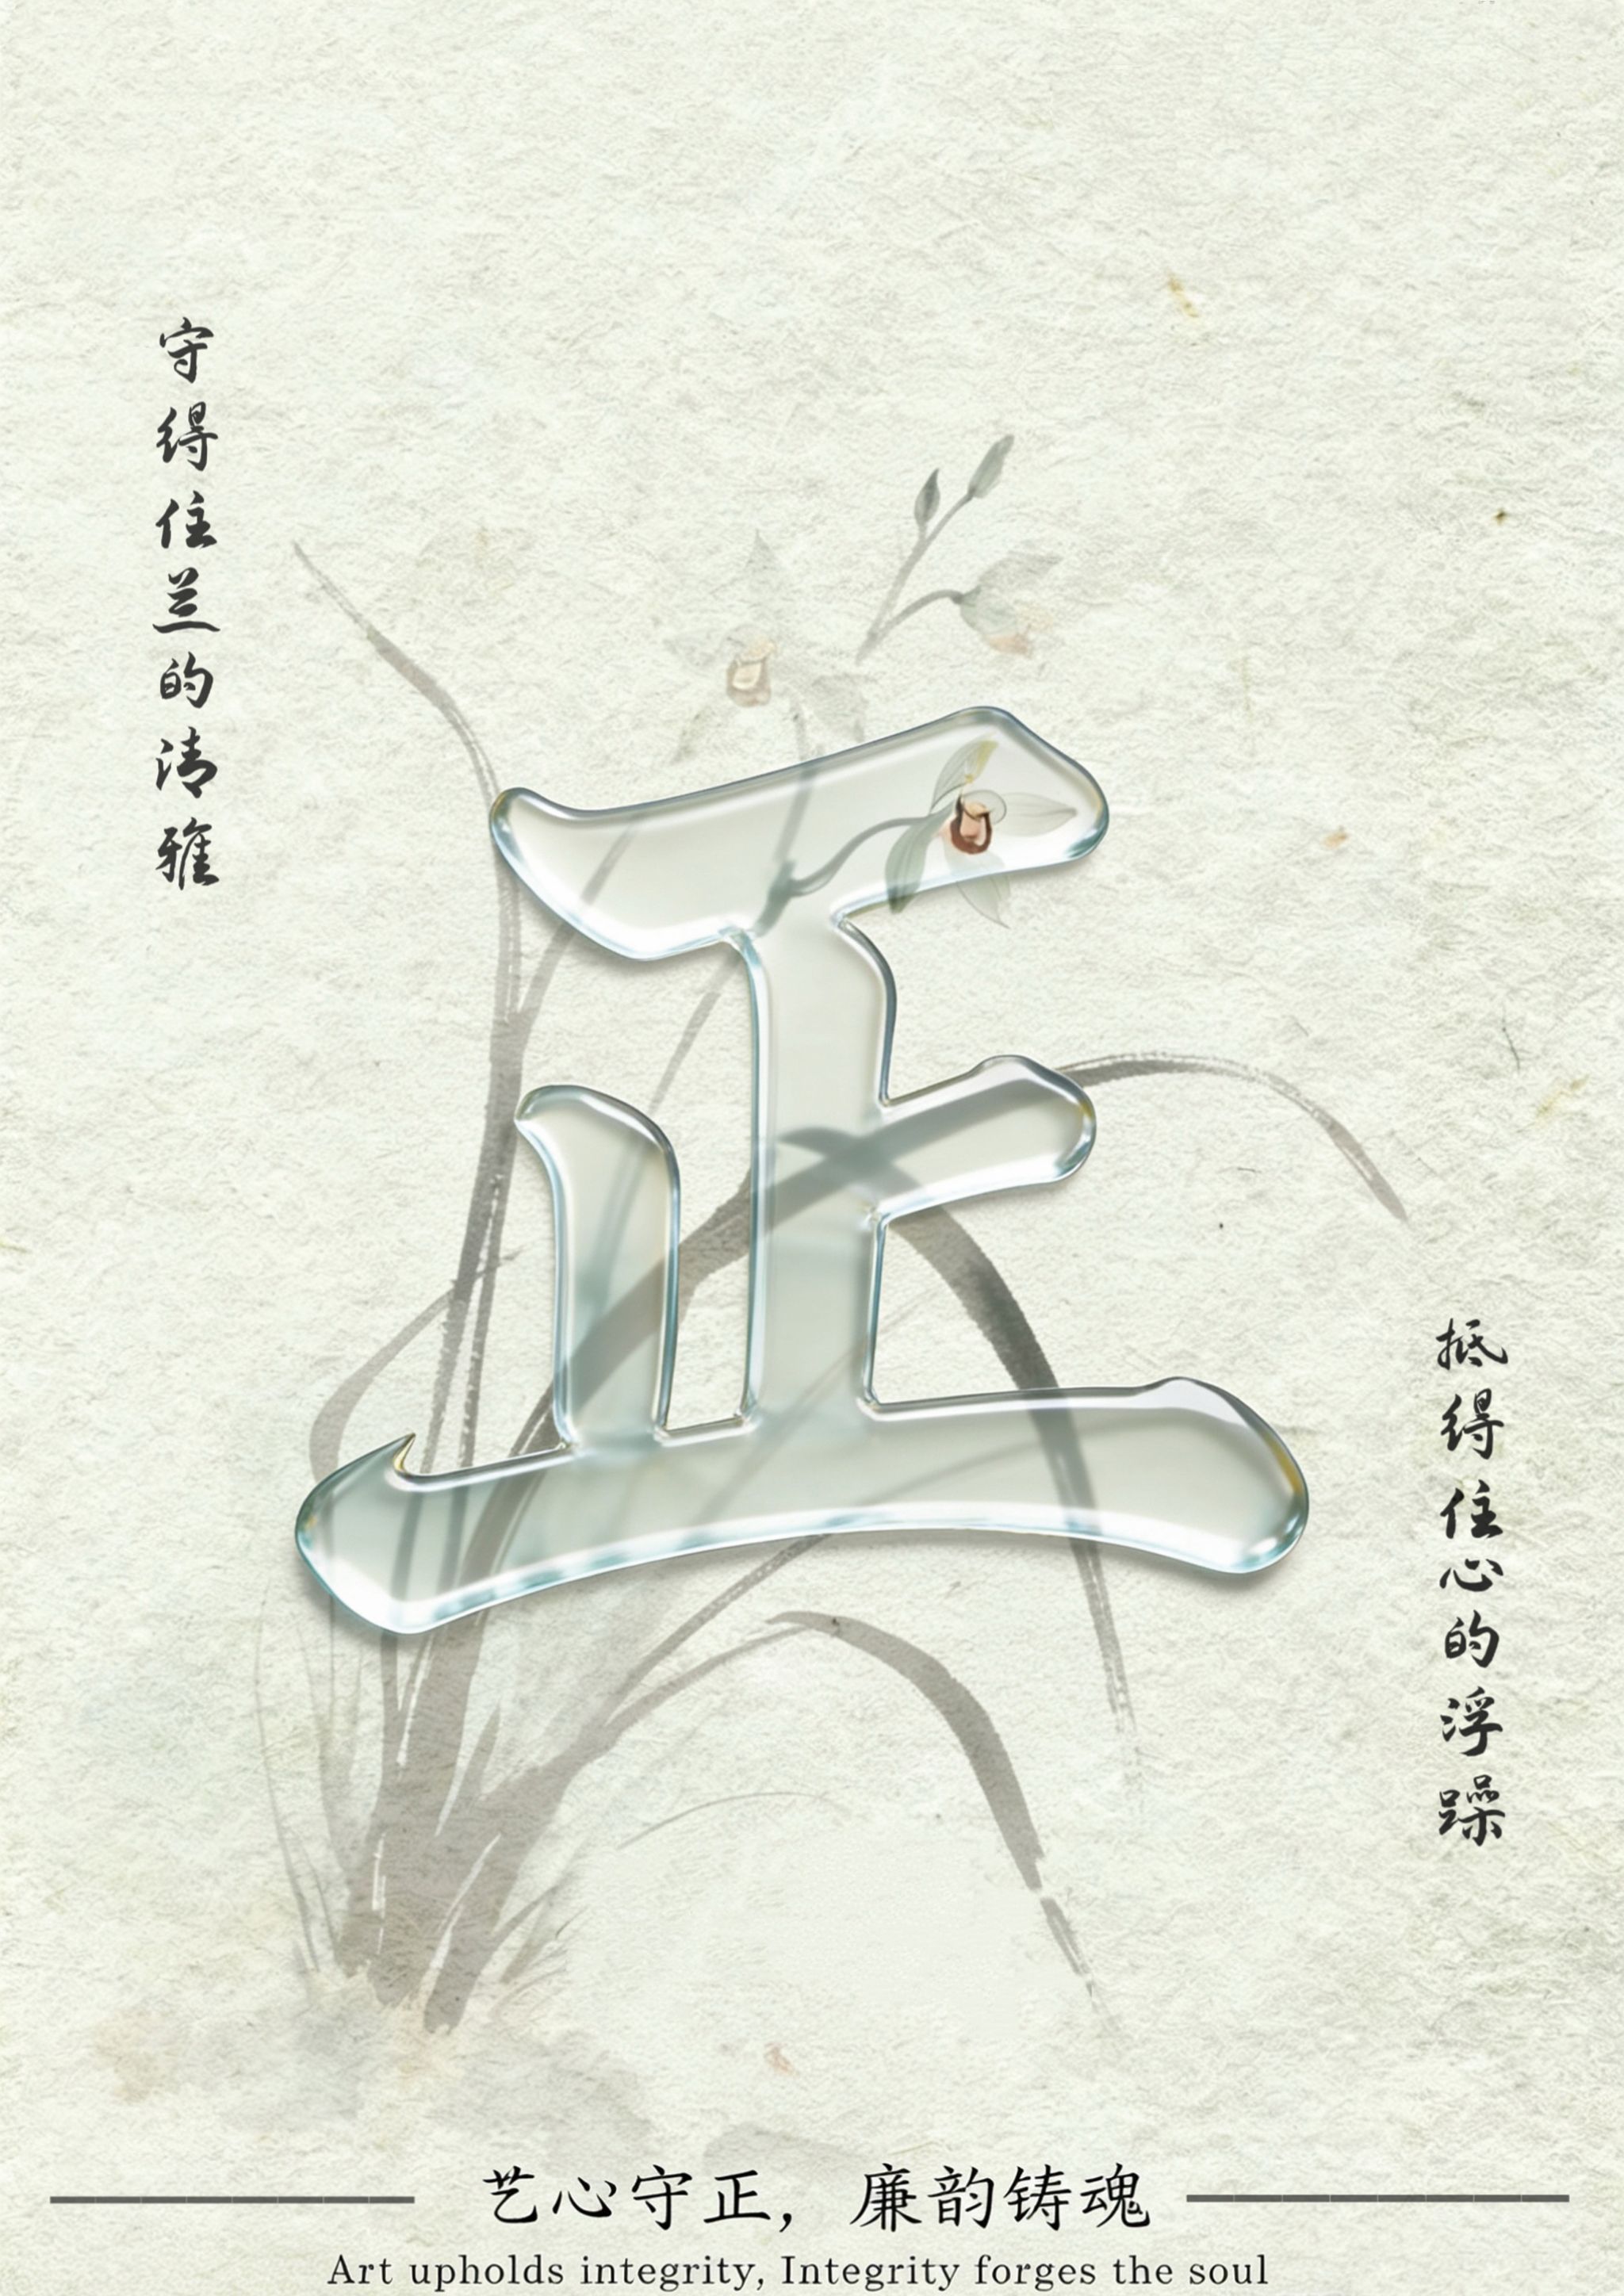 守得住兰的清雅
正
抵得住心的浮躁
艺心守正，廉韵铸魂
Art upholds integrity, Integrity forges the soul